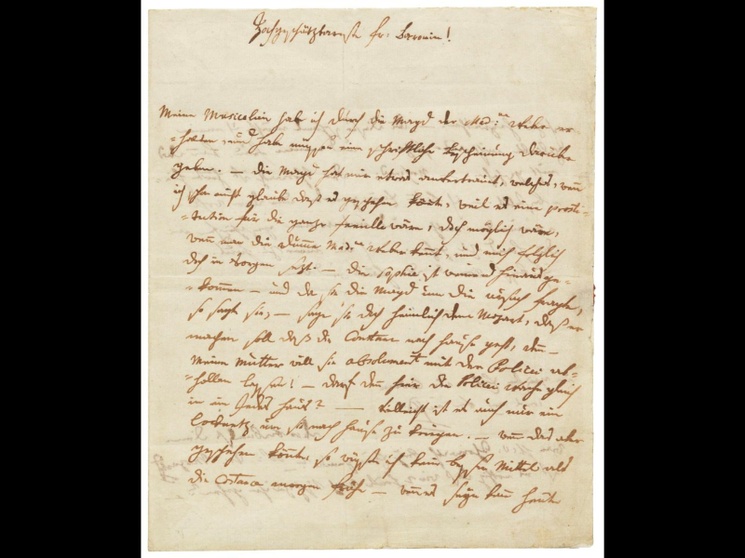 Hochgeschätzteste Fr: Baronin!
Meine Musicalien habe ich durch die Magd der Mad:me Weber er=
=halten, und habe müssen eine schriftliche bescheinung darüber
geben. — die Magd hat mir etwas anvertrauet, welches, wenn
ich schon nicht glaube daß es geschehen könnte, weil es eine prosti=
=tution für die ganze familie wäre, doch möglich wäre,
wenn man die dumme Mad:me Weber kennt, und mich folglich
doch in Sorgen setzt. — die Sophie ist weinend hinausge=
=kommen — und da sie die Magd um die ursach fragte,
so sagte sie, — sage sie doch heimlich dem Mozart, daß er
machen soll daß die Constanz nach hause geht, denn —
meine Mutter will sie absolument mit der Policei ab=
=hollen lassen! — darf denn hier die Policei wache gleich
in ein Jedes haus? — Vielleicht ist es auch nur ein
locknetz um sie nach hause zu bringen. — wenn das aber
geschehen könnte, so wüsste ich kein besser Mittel als
die Costance morgen frühe — wenns seyn kann heute